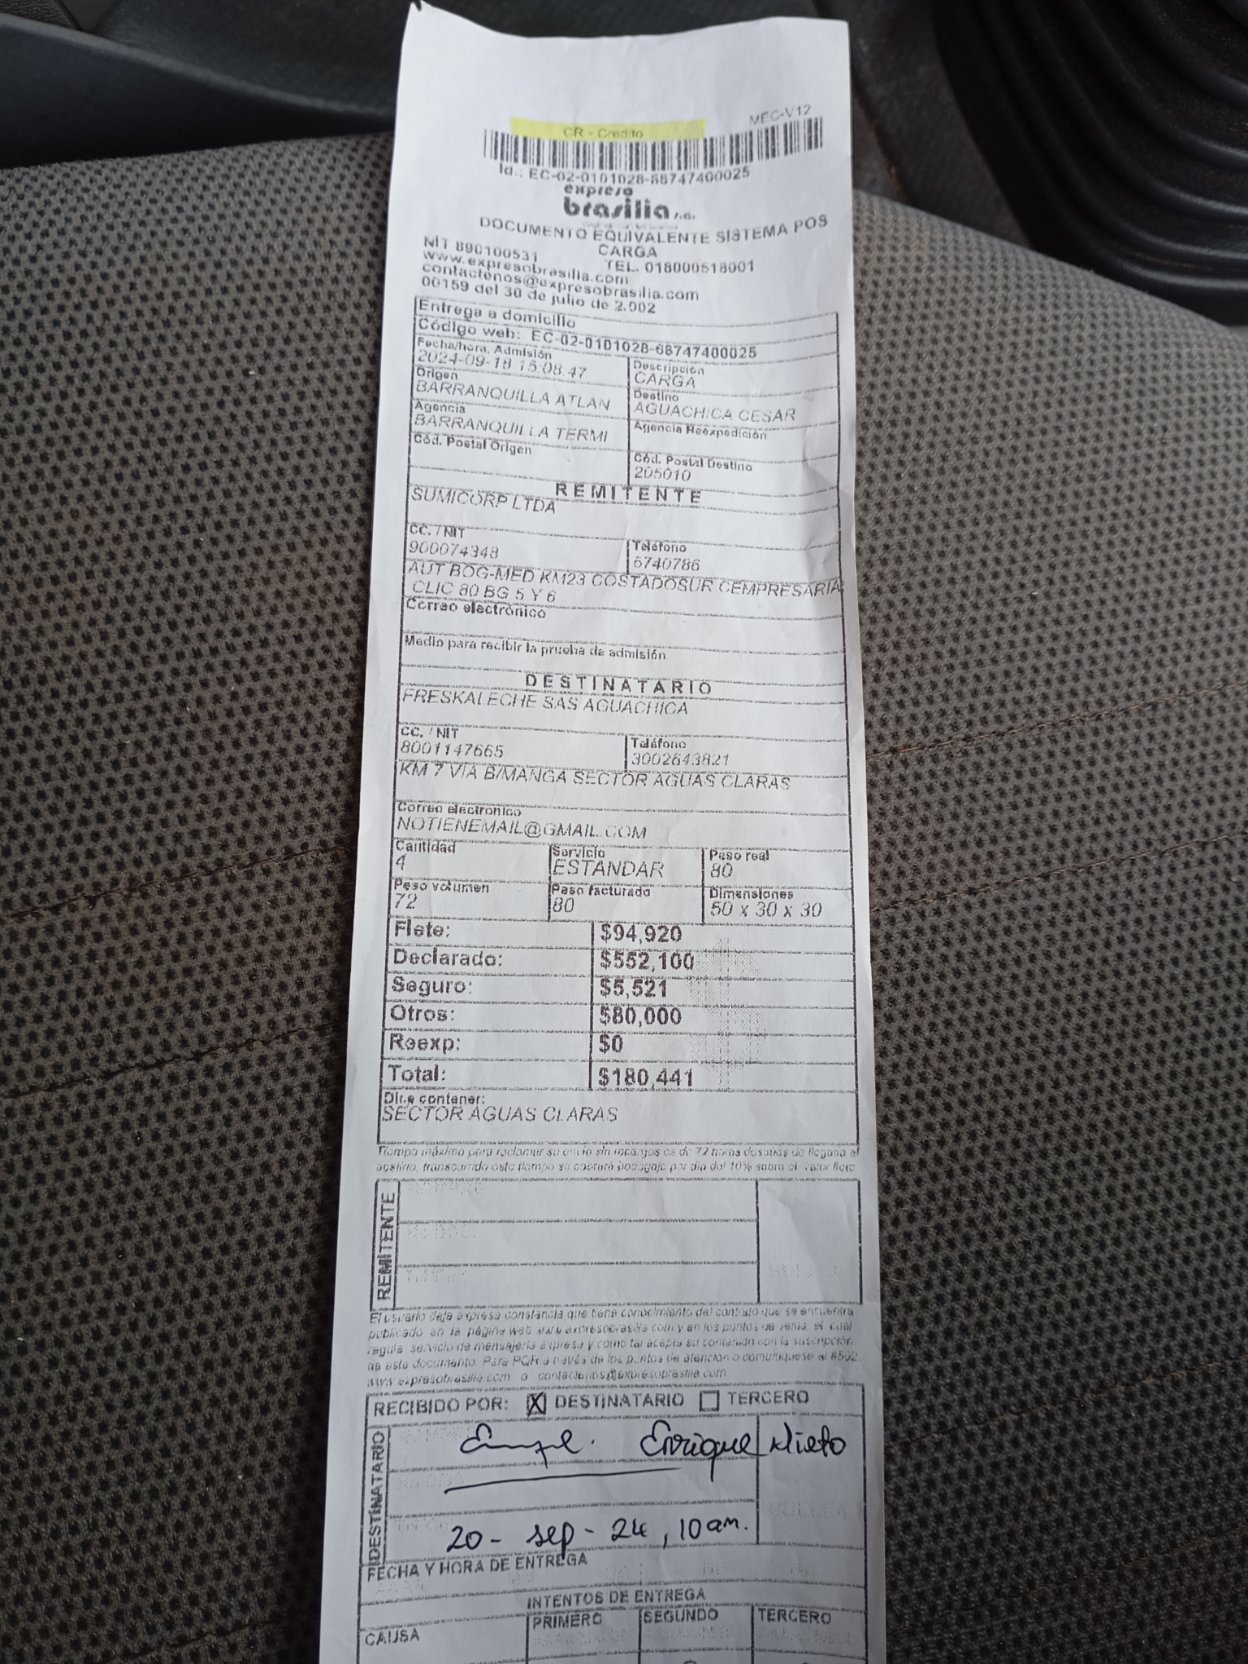 CR - Credito
MEC-V12
Id.: EC-02-0101028-68747400025
expreso
brasilia s.a.
DOCUMENTO EQUIVALENTE SISTEMA POS
CARGA
NIT 890100531 TEL. 018000518001
www.expresobrasilia.com
contactenos@expresobrasilia.com
00159 del 30 de julio de 2.002
Entrega a domicilio
Código web: EC-02-0101028-68747400025
Fecha/hora, Admisión Descripción
2024-09-18 15:08:47 CARGA
Origen Destino
BARRANQUILLA ATLAN AGUACHICA CESAR
Agencia Agencia Reexpedición
BARRANQUILLA TERMI
Cód. Postal Origen Cód. Postal Destino
205010
REMITENTE
SUMICORP LTDA
CC. / NIT Teléfono
900074348 6740786
AUT BOG-MED KM23 COSTADOSUR CEMPRESARIA
CLIC 80 BG 5 Y 6
Correo electrónico
Medio para recibir la prueba de admisión
DESTINATARIO
FRESKALECHE SAS AGUACHICA
CC. / NIT Teléfono
8001147665 3002643821
KM 7 VIA B/MANGA SECTOR AGUAS CLARAS
Correo electrónico
NOTIENEMAIL@GMAIL.COM
Cantidad Servicio Peso real
4 ESTANDAR 80
Peso volumen Peso facturado Dimensiones
72 80 50 x 30 x 30
Flete: $94,920
Declarado: $552,100
Seguro: $5,521
Otros: $80,000
Reexp: $0
Total: $180,441
Dice contener:
SECTOR AGUAS CLARAS
Tiempo máximo para reclamar su envío sin recargos es de 72 horas después de llegada al
destino, transcurrido este tiempo se cobrará bodegaje por día del 10% sobre el valor flete
REMITENTE
El usuario deja expresa constancia que tiene conocimiento del contrato que se encuentra
publicado en la página web www.expresobrasilia.com y en los puntos de venta, el cual
regula servicio de mensajería expresa y como tal acepta su contenido con la suscripción
de este documento. Para PQR a través de los puntos de atención o comuníquese al #502
www.expresobrasilia.com o contactenos@expresobrasilia.com
RECIBIDO POR: X DESTINATARIO TERCERO
DESTINATARIO
Enrique Nieto
20 - sep - 24, 10 am.
FECHA Y HORA DE ENTREGA
INTENTOS DE ENTREGA
CAUSA PRIMERO SEGUNDO TERCERO